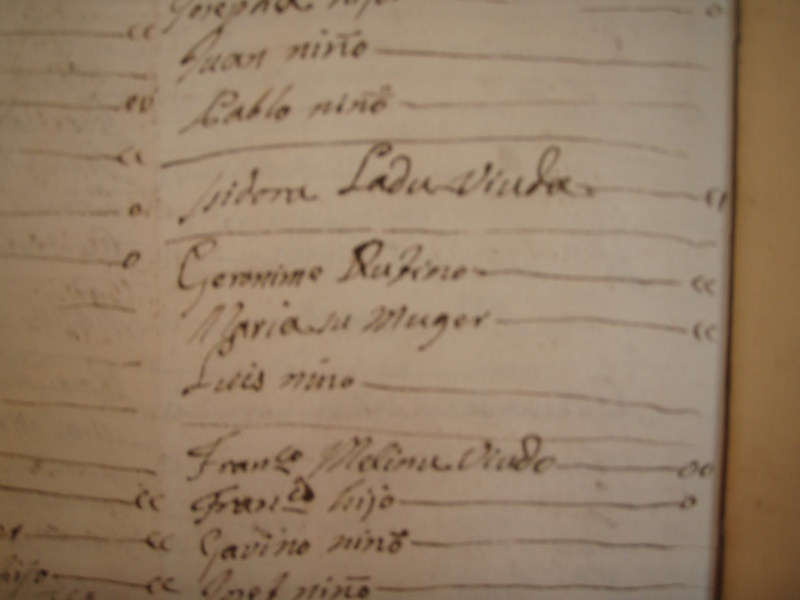 Juan niño
Pablo niño
Isidora Ladu Viuda cc
Geronimo Rufino cc
Maria su Muger cc
Luis nino
Fran.co Molinu Viudo oo
Fran.co hijo o
Gavino niño
Josef niño